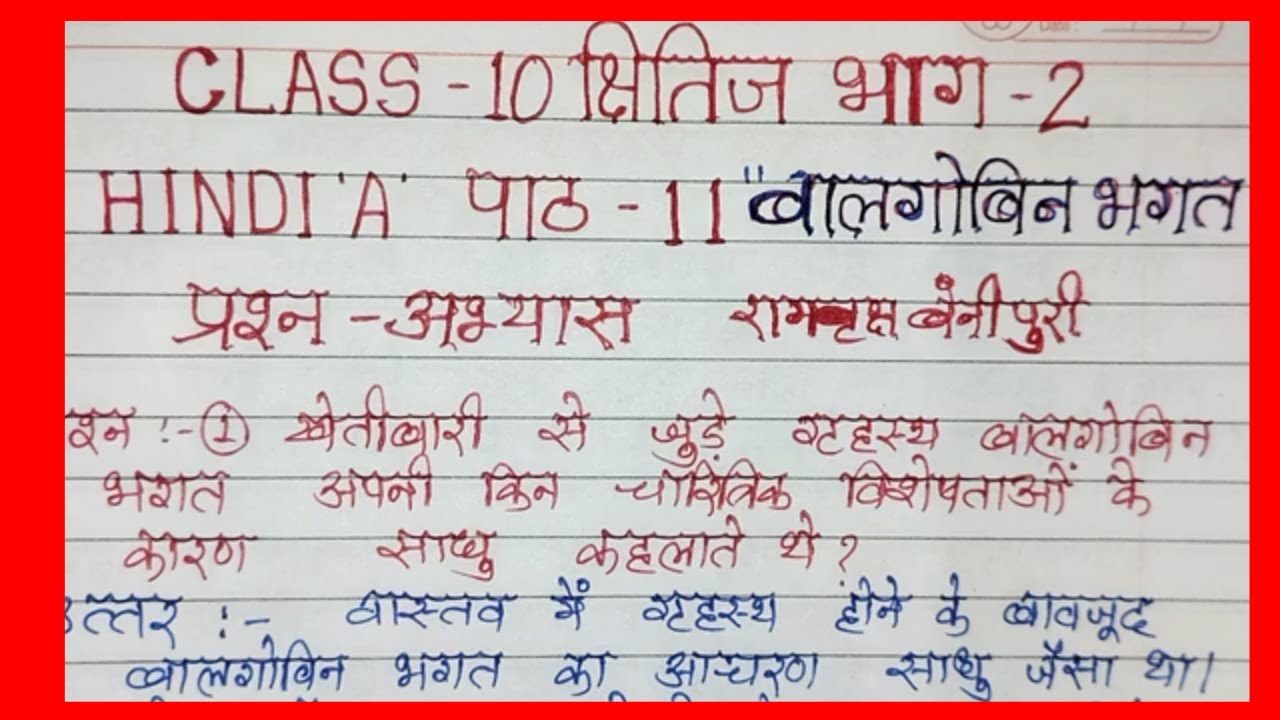 CLASS - 10 क्षितिज भाग - 2
HINDI 'A' पाठ - 11 "बालगोबिन भगत
प्रश्न - अभ्यास रामवृक्ष बेनीपुरी
श्न :- ① खेतीबारी से जुड़े गृहस्थ बालगोबिन
भगत अपनी किन चारित्रिक विशेषताओं के
कारण साधु कहलाते थे ?
उत्तर :- वास्तव में गृहस्थ होने के बावजूद
बालगोबिन भगत का आचरण साधु जैसा था।